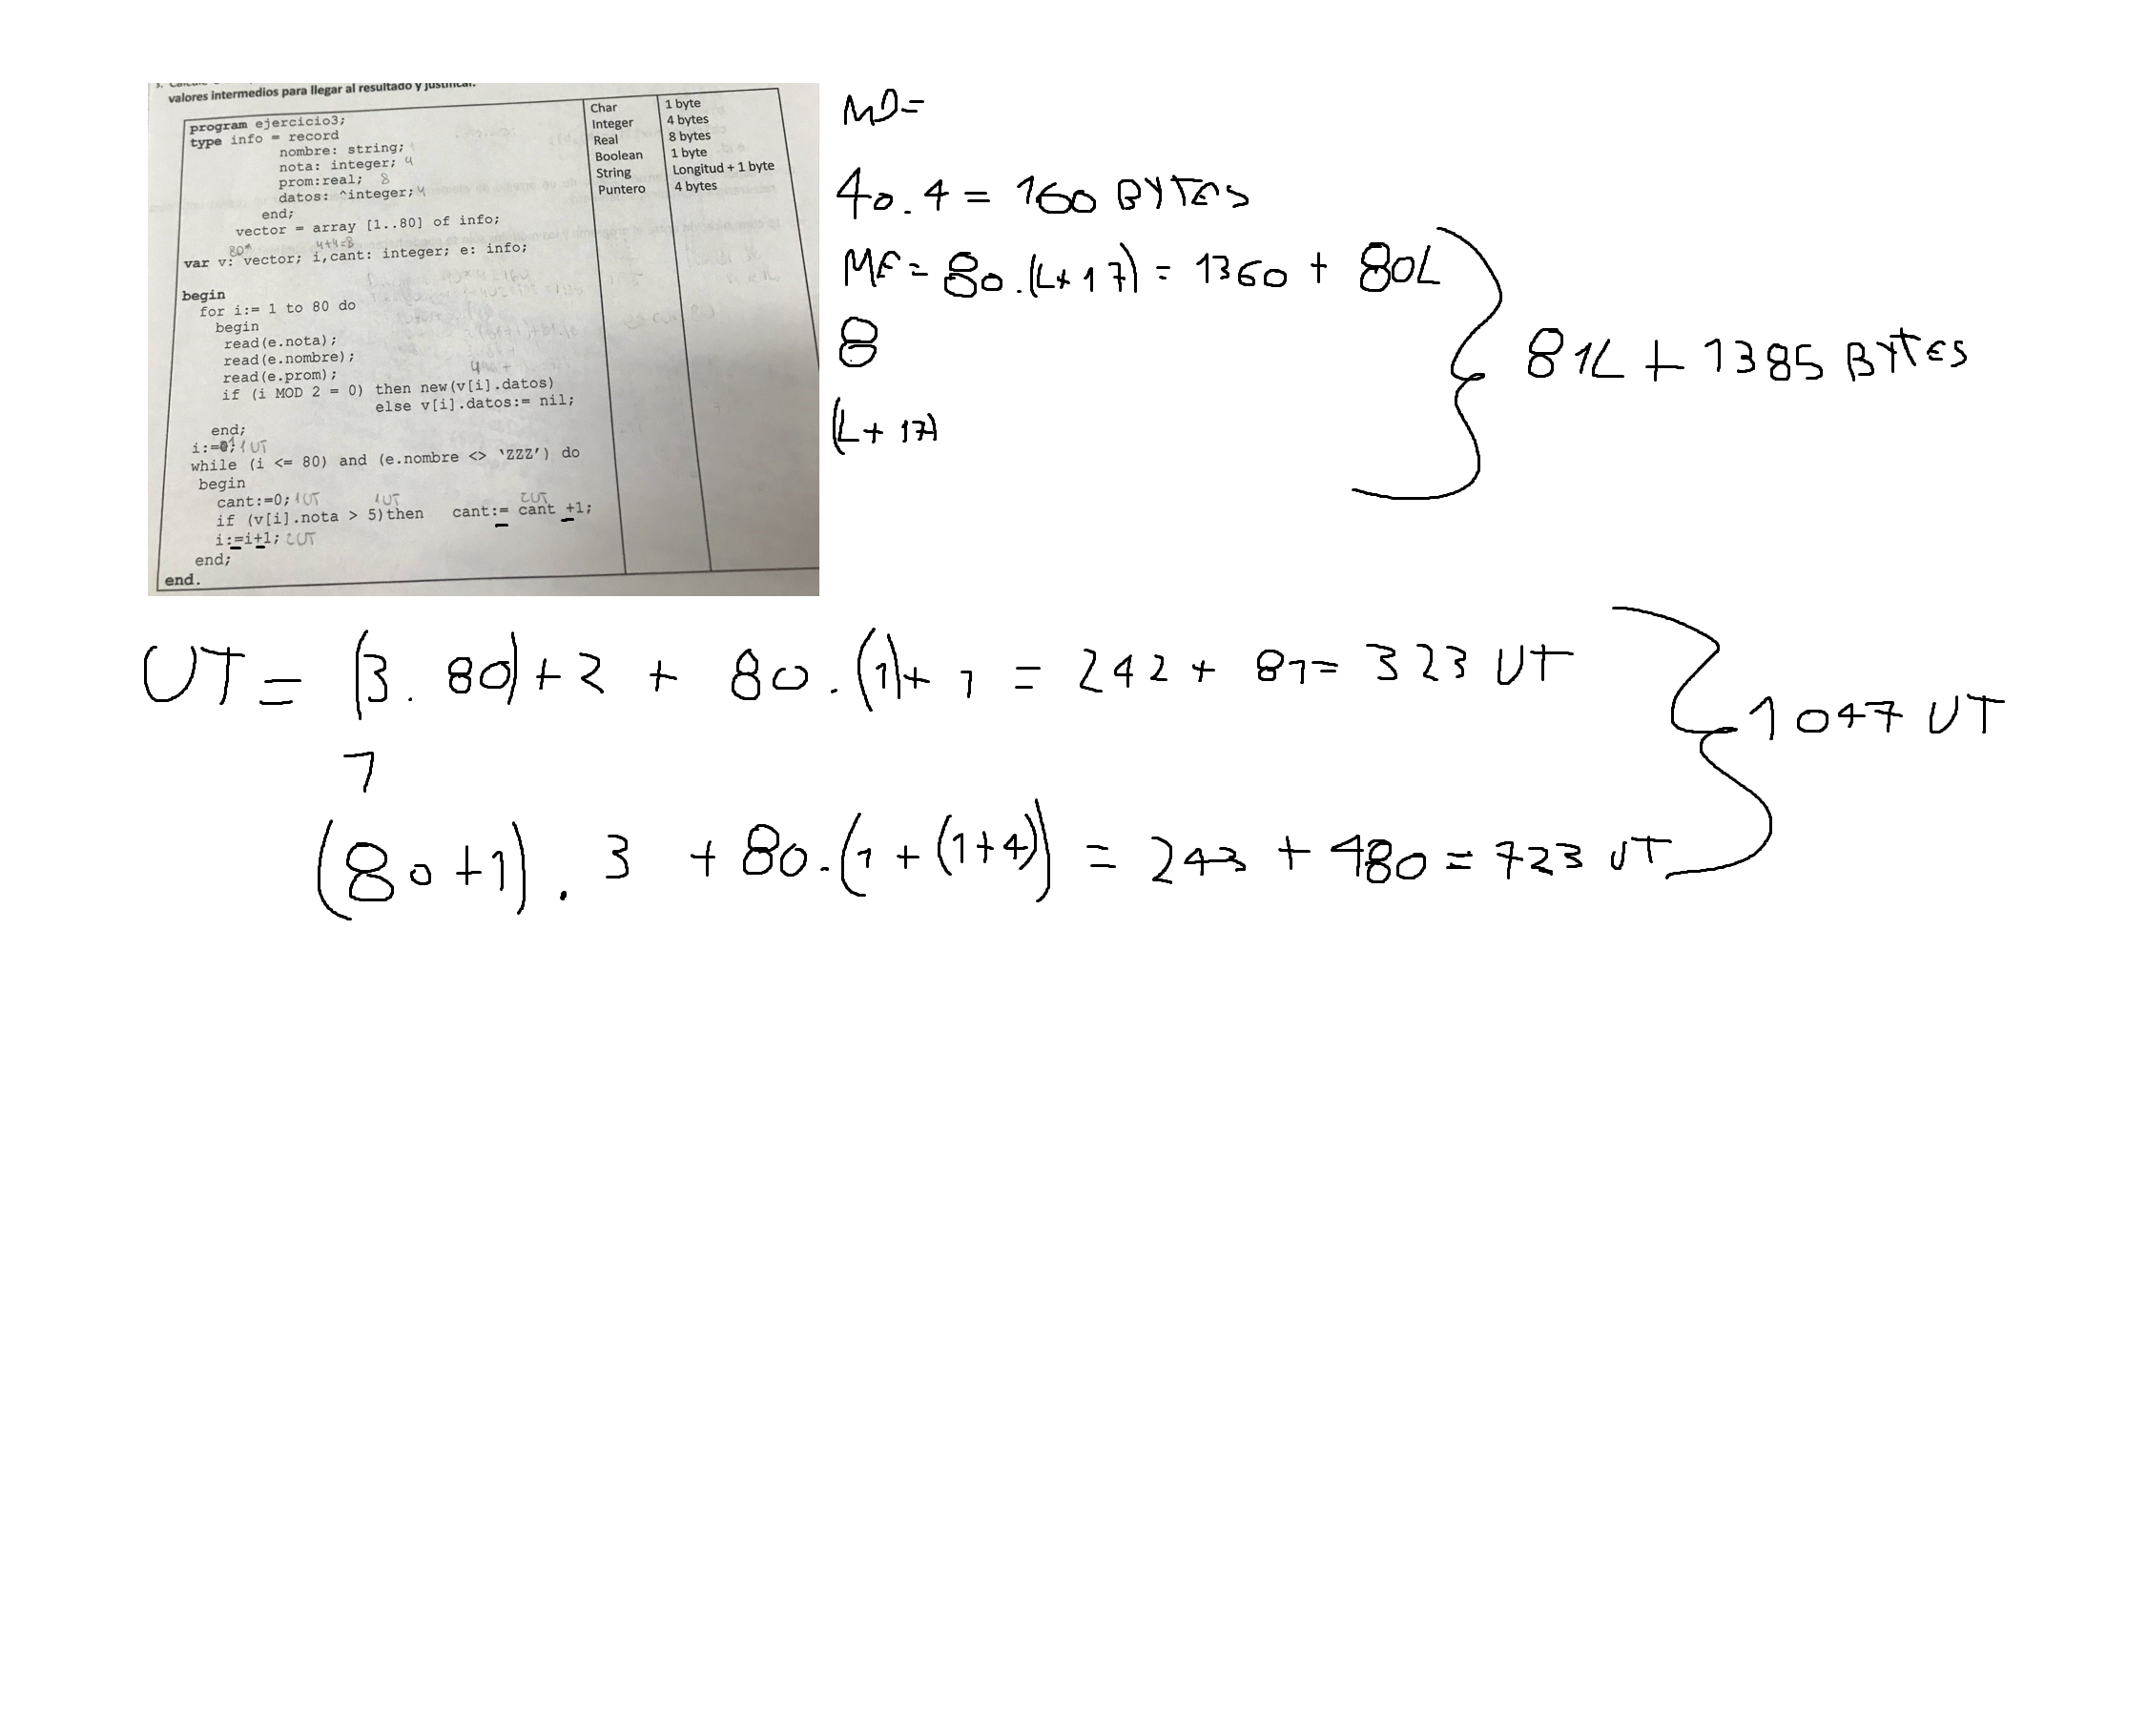 valores intermedios para llegar al resultado y justificar.
program ejercicio3;
type info = record
nombre: string;
nota: integer; 4
prom:real; 8
datos: ^integer; 4
end;
vector = array [1..80] of info;
80* 4+4=8
var v: vector; i,cant: integer; e: info;
begin
for i:= 1 to 80 do
begin
read(e.nota);
read(e.nombre);
read(e.prom);
if (i MOD 2 = 0) then new(v[i].datos)
else v[i].datos:= nil;
end;
i:=1; 1UT
while (i <= 80) and (e.nombre <> 'ZZZ') do
begin
cant:=0; 1UT 1UT 2UT
if (v[i].nota > 5)then cant:= cant +1;
i:=i+1; 2UT
end;
end.
Char 1 byte
Integer 4 bytes
Real 8 bytes
Boolean 1 byte
String Longitud + 1 byte
Puntero 4 bytes
MD=
40.4 = 160 BYTES
MF= 80.(L+17) = 1360 + 80L
8
(L+17)
81L + 1385 BYTES
UT = (3.80)+2 + 80.(1)+1 = 242 + 81= 323 UT
1
(80+1).3 + 80.(1+(1+4)) = 243 + 480 = 723 UT
1047 UT